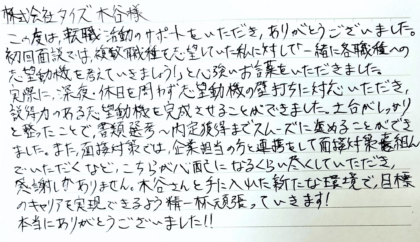 株式会社タイズ 木谷様
この度は、転職活動のサポートをいただき、ありがとうございました。
初回面談では、複数職種を志望していた私に対して「一緒に各職種への
志望動機を考えていきましょう!」と心強いお言葉をいただきました。
実際に、深夜・休日を問わず志望動機の壁打ちに対応いただき、
説得力のある志望動機を完成させることができました。土台がしっかり
と整ったことで、書類選考〜内定獲得までスムーズに進めることができ
ました。また、面接対策では、企業担当の方と連携をして面接対策を組ん
でいただくなど、こちらが心配になるくらい尽くしていただき、
感謝しかありません。木谷さんと手に入れた新たな環境で、目標
のキャリアを実現できるよう精一杯頑張っていきます!
本当にありがとうございました!!